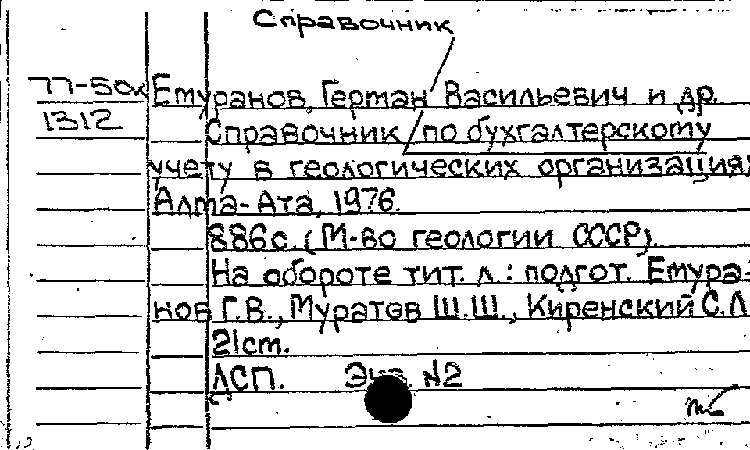 Справочник
77-50к Емуранов, Герман Васильевич и др.
1312 Справочник / по бухгалтерскому
учету в геологических организациях
Алма-Ата, 1976.
886с. (М-во геологии СССР).
На обороте тит. л.: подгот. Емура-
нов Г.В., Муратов Ш.Ш., Киренский С.Л
21см.
ДСП. Экз. №2